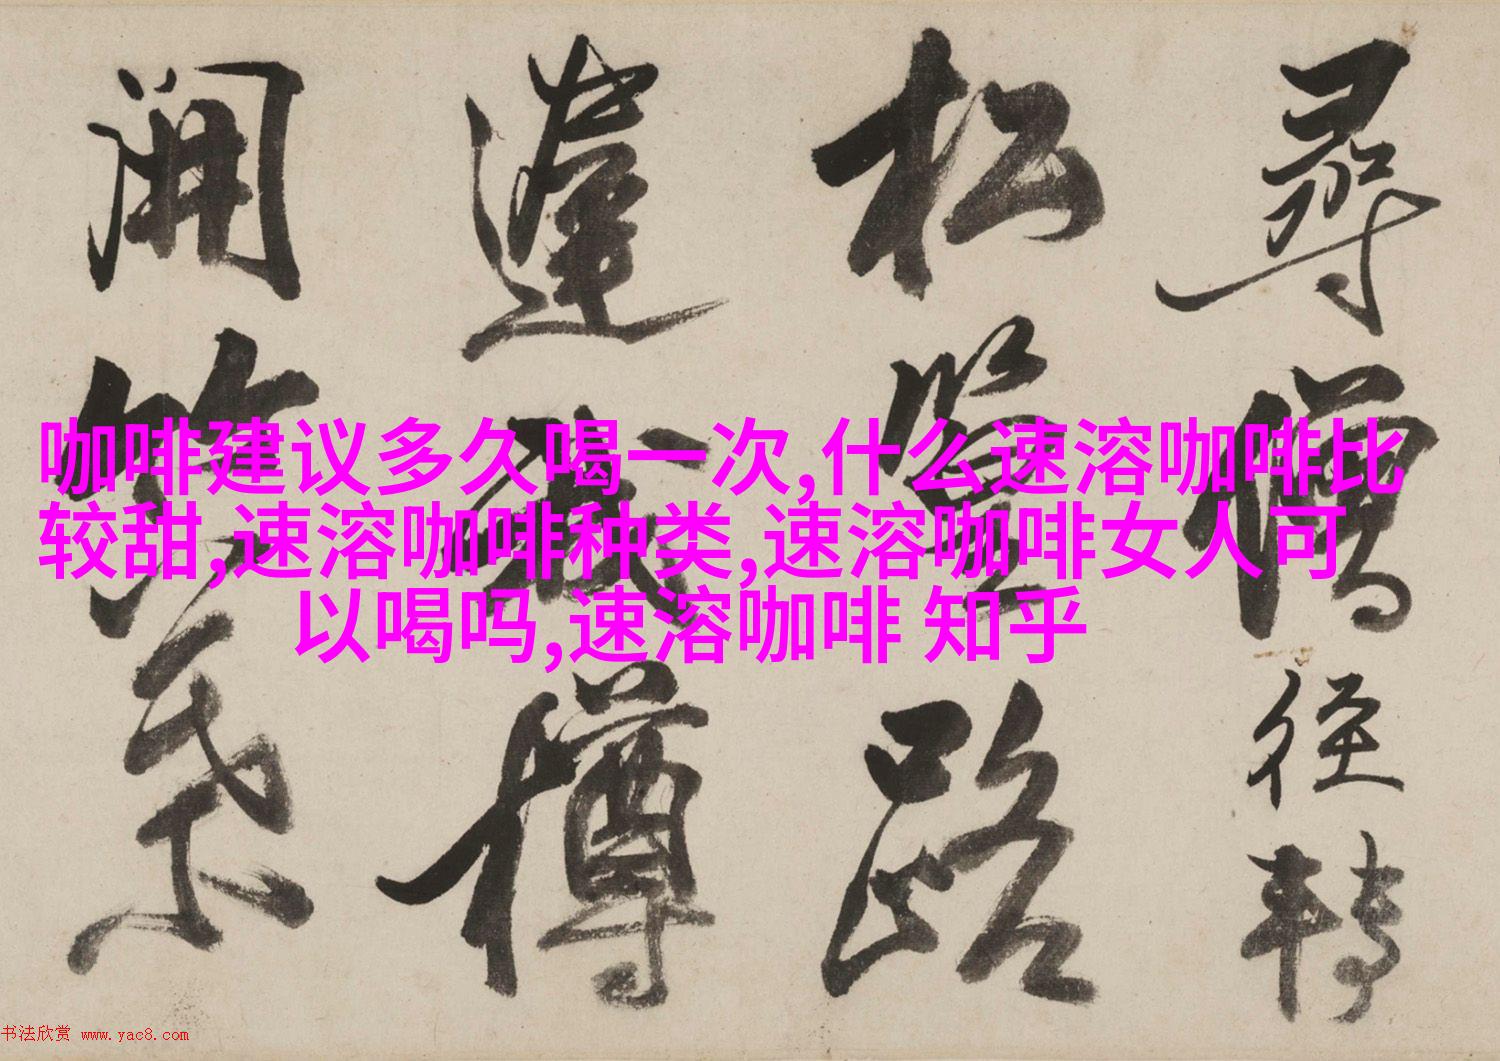 尋僧徑轉
松路
樽
開
咖啡建议多久喝一次,什么速溶咖啡比
较甜,速溶咖啡种类,速溶咖啡女人可
以喝吗,速溶咖啡 知乎
书法欣赏 www.yac8.com